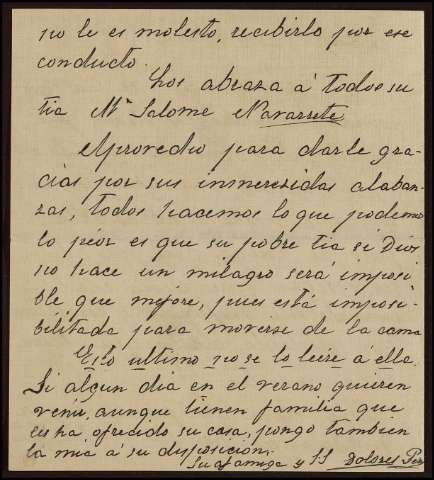 no le es molesto, recibirlo por ese
conducto.
Los abraza á todos su
tia Mª Salome Navarrete
Aprovecho para darle gra-
cias por sus inmerecidas alaban-
zas, todos hacemos lo que podemos
lo peor es que su pobre tia si Dios
no hace un milagro será imposi
ble que mejore, pues está imposi-
bilitada para moverse de la cama
Esto ultimo no se lo leire á ella.
Si algun dia en el verano quieren
venir, aunque tienen familia que
les ha ofrecido su casa, pongo tambien
la mia á su disposición.
Su amiga y SS Dolores